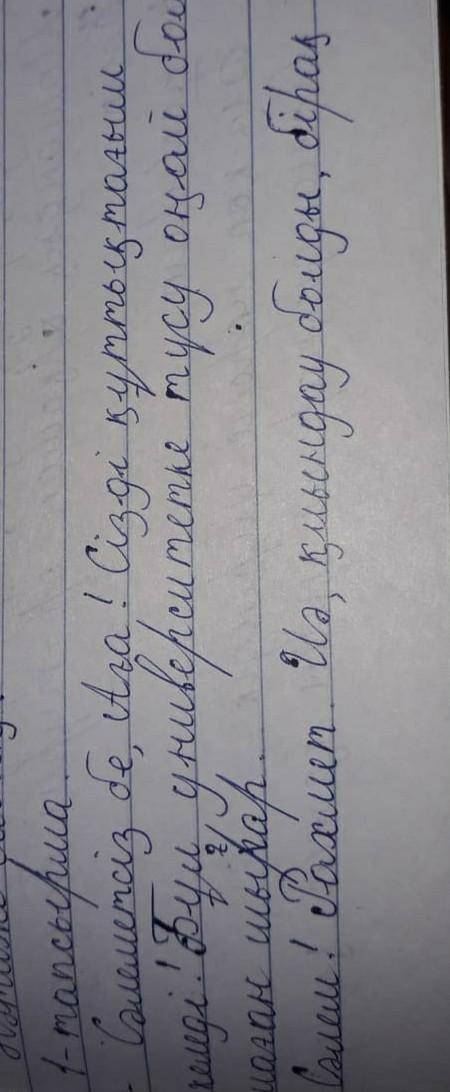 1-тапсырма.
- Сәлеметсіз бе, Аға! Сізді құттықтағым
келеді! Бұл университетке түсу оңай бол
маған шығар.
Сәлем! Рахмет. Иә, қиындау болды, бірақ